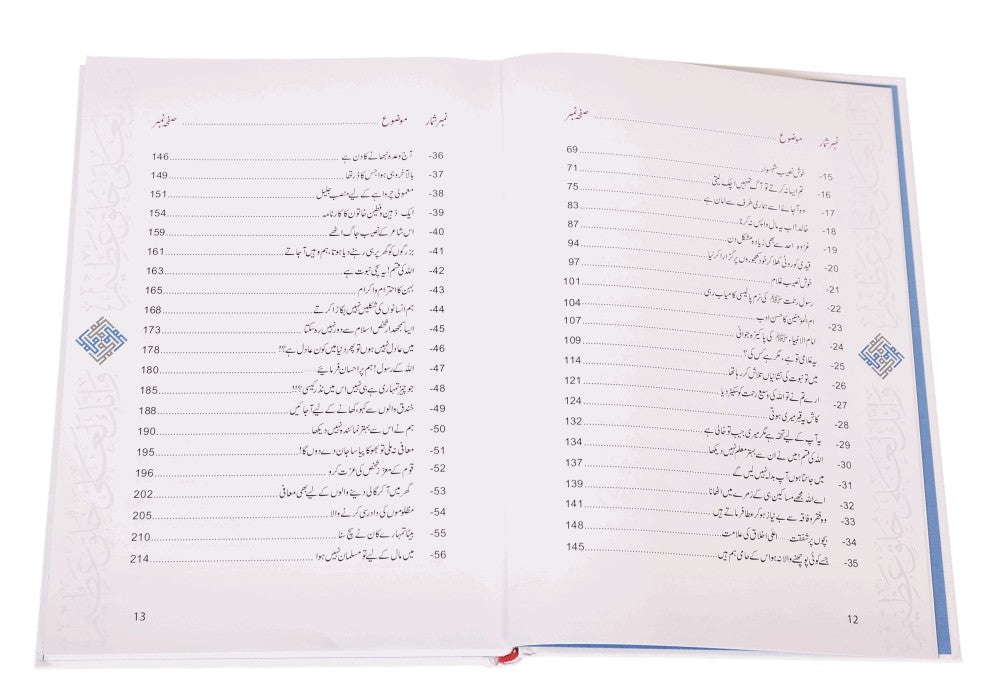 نمبر شمار موضوع ........ صفحہ نمبر
15- خوش نصیب شہسوار ........ 69
16- تم ایسا نہ کرتے تو آگ تمھیں اچک لیتی ........ 71
17- وہ آجائے اسے ہماری طرف سے امان ہے ........ 75
18- خالد! اب یہ مال واپس نہ کرنا ........ 83
19- غزوہ احد سے بھی زیادہ مشکل دن ........ 87
20- قیدی کو روٹی کھلا کر خود کھجوروں پر گزارا کر لیا ........ 94
21- خوش نصیب غلام ........ 97
22- رسول رحمت ﷺ کی نرم پالیسی کامیاب رہی ........ 101
23- ام المومنین کا حسن ادب ........ 104
24- امام الانبیاء ﷺ کی پاکیزہ جوانی ........ 107
25- یہ غلامی تو ہے، مگر ہے کس کی؟ ........ 109
26- میں تو نبوت کی نشانیاں تلاش کر رہا تھا ........ 114
27- ارے تم نے تو اللہ کی وسیع رحمت کو سکیڑ دیا ........ 121
28- کاش یہ قبر میری ہوتی ........ 124
29- یہ آپ کے لیے تحفہ ہے مگر میری جیب تو خالی ہے ........ 132
30- اللہ کی قسم! میں نے ان سے بہتر معلم نہیں دیکھا ........ 134
31- میں جانتا ہوں آپ بدلہ نہیں لیں گے ........ 137
32- اے اللہ مجھے مساکین ہی کے زمرے میں اٹھانا ........ 139
33- وہ فقر و فاقہ سے بے نیاز ہو کر عطا فرماتے ہیں ........ 141
34- بچوں پر شفقت ..... اعلیٰ اخلاق کی علامت ........ 148
35- جسے کوئی پوچھنے والا نہ ہو اس کے حامی ہم ہیں ........ 145
12
نمبر شمار موضوع ........ صفحہ نمبر
36- آج وعدہ نبھانے کا دن ہے ........ 146
37- بالآخر وہی ہوا جس کا ڈر تھا ........ 149
38- معمولی چرواہے کے لیے منصب جلیل ........ 151
39- ایک ذہین و فطین خاتون کا کارنامہ ........ 154
40- اس شاعر کے نصیب جاگ اٹھے ........ 159
41- بزرگوں کو گھر پر ہی رہنے دیا ہوتا، ہم وہیں آ جاتے ........ 161
42- اللہ کی قسم! یہ سچی نبوت ہے ........ 163
43- بہن کا احترام و اکرام ........ 165
44- ہم انسانوں کی شکلیں نہیں بگاڑا کرتے ........ 168
45- ایسا سمجھدار شخص اسلام سے دور نہیں رہ سکتا ........ 173
46- میں عادل نہیں ہوں تو پھر دنیا میں کون عادل ہے؟! ........ 178
47- اللہ کے رسول! ہم پر احسان فرمایئے ........ 180
48- جو چیز تمہاری ہے ہی نہیں اس میں نذر کیسی؟!! ........ 185
49- خندق والوں سے کہو، کھانے کے لیے آجائیں ........ 188
50- ہم نے اس سے بہتر نمائندہ نہیں دیکھا ........ 190
51- معافی نہ ملی تو بھوکا پیاسا جان دے دوں گا! ........ 195
52- قوم کے معزز شخص کی عزت کرو ........ 196
53- گھر میں آ کر گالی دینے والوں کے لیے بھی معافی ........ 202
54- مظلوموں کی داد رسی کرنے والا ........ 205
55- بیٹا تمہارے کان نے سچ سنا ........ 210
56- میں مال کے لیے تو مسلمان نہیں ہوا ........ 214
13